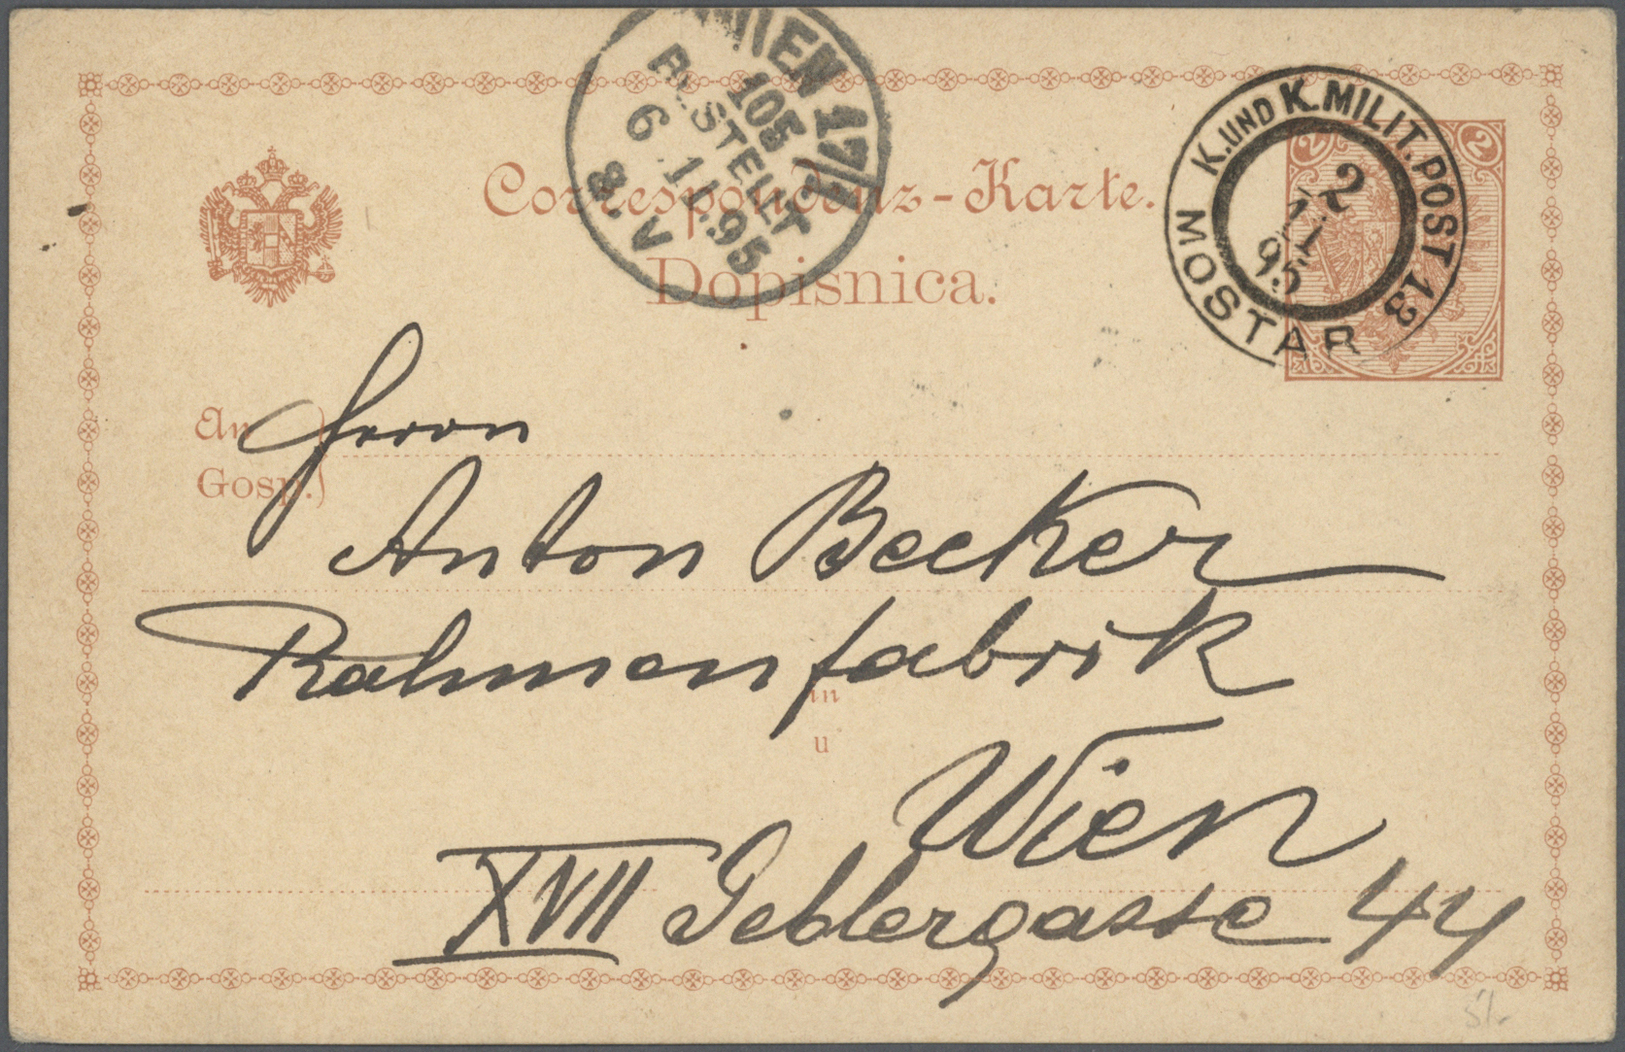 WIEN 17/1
105
BESTELLT
6.11.95
8.V
K. UND K. MILIT. POST 13
MOSTAR
2
11
95
2 2
Correspondenz-Karte.
Dopisnica.
An
Gosp.
Herrn
Anton Becker
Rahmenfabrik
in
u
Wien
XVII Geblergasse 44